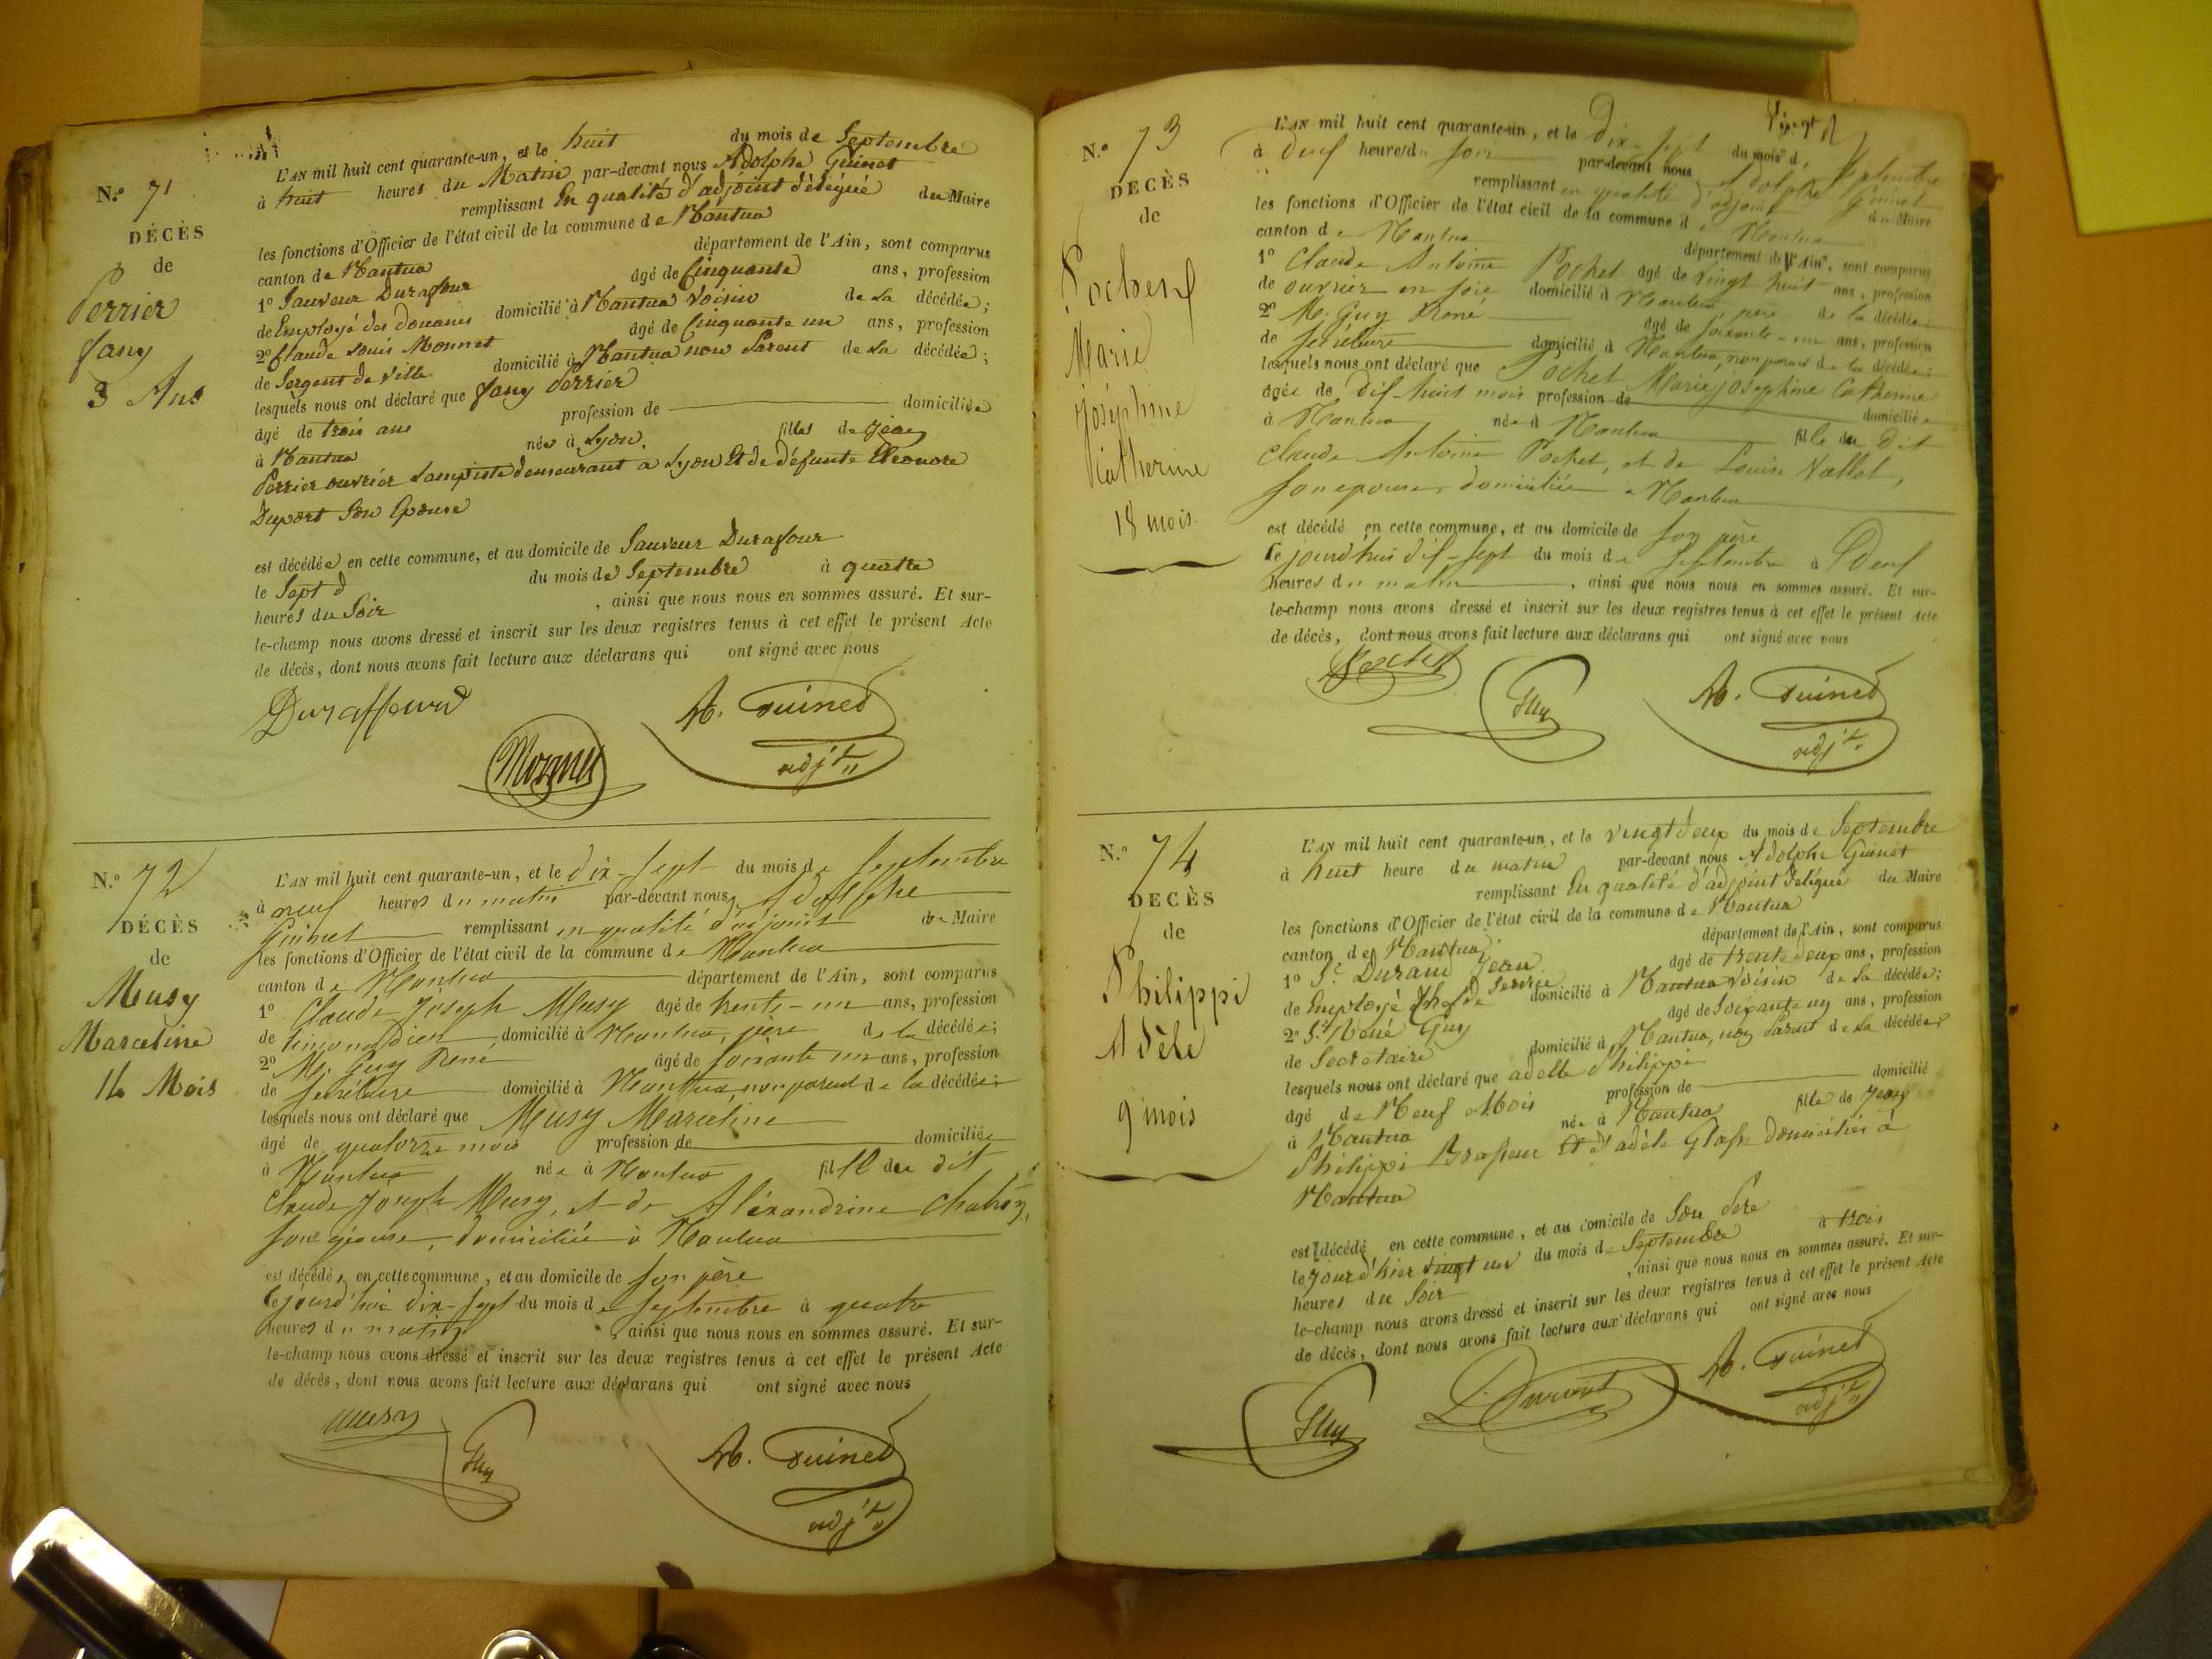 N.° 71
DÉCÈS
de
Perrier
fany
3 Ans
L'AN mil huit cent quarante-un, et le huit du mois de Septembre
à huit heures du Matin par-devant nous Adolphe Guinet
remplissant En qualité d'adjoint délégué du Maire
les fonctions d'Officier de l'état civil de la commune de Nantua
canton de Nantua département de l'Ain, sont comparus
1° Sauveur Durafour âgé de Cinquante ans, profession
de Employé des douanes domicilié à Nantua voisin de La décédée;
2° Claude Louis Monnet âgé de Cinquante un ans, profession
de Sergent de Ville domicilié à Nantua non Parent de La décédée;
lesquels nous ont déclaré que fany Perrier
âgé de trois ans profession de domiciliée
à Nantua née à Lyon. fille de Jean
Perrier ouvrier Lampiste demeurant a Lyon Et de défunte Eleonore
Duport Son Epouse
est décédée en cette commune, et au domicile de Sauveur Durafour
le Sept d du mois de Septembre à quatre
heures du Soir , ainsi que nous nous en sommes assuré. Et sur-
le-champ nous avons dressé et inscrit sur les deux registres tenus à cet effet le présent Acte
de décès, dont nous avons fait lecture aux déclarans qui ont signé avec nous
Duraffourd
Monnet
A. Guinet
adjt
N.° 72
DÉCÈS
de
Musy
Marceline
14 Mois
L'AN mil huit cent quarante-un, et le dix-sept du mois de Septembre
à neuf heures du matin par-devant nous, Adolphe
Guinet remplissant en qualité d'adjoint de Maire
les fonctions d'Officier de l'état civil de la commune de Nantua
canton de Nantua département de l'Ain, sont comparus
1° Claude Joseph Musy âgé de trente-un ans, profession
de limonadier domicilié à Nantua, père de la décédée;
2° M. Guy René âgé de soixante un ans, profession
de secrétaire domicilié à Nantua, non parent de la décédée;
lesquels nous ont déclaré que Musy Marceline
âgé de quatorze mois profession de domiciliée
à Nantua née à Nantua fille du dit
Claude Joseph Musy, et de Aléxandrine
son épouse, domiciliée à Nantua
est décédée en cette commune, et au domicile de son père
le jourd'hui dix-sept du mois de Septembre à quatre
heures du matin ainsi que nous nous en sommes assuré. Et sur-
le-champ nous avons dressé et inscrit sur les deux registres tenus à cet effet le présent Acte
de décès, dont nous avons fait lecture aux déclarans qui ont signé avec nous
Musy
Guy
A. Guinet
adjt
N.° 73
DÉCÈS
de
Pochet
Marie
Joséphine
Catherine
18 mois
L'AN mil huit cent quarante-un, et le Dix-sept du mois de Septembre
à deux heures du soir par-devant nous Adolphe Guinet
remplissant en qualité d'adjoint du Maire
les fonctions d'Officier de l'état civil de la commune de Nantua
canton de Nantua département de l'Ain, sont comparus
1° Claude Antoine Pochet âgé de vingt huit ans, profession
de ouvrier en soie domicilié à Nantua, père de la décédée;
2° M. Guy René âgé de soixante-un ans, profession
de secrétaire domicilié à Nantua, non parent de la décédée;
lesquels nous ont déclaré que Pochet Marie joséphine Catherine
âgée de dix-huit mois profession de domiciliée
à Nantua née à Nantua fille du dit
Claude Antoine Pochet, et de Louise Vallet,
son épouse, domiciliée à Nantua
est décédé en cette commune, et au domicile de son père
le jourd'hui dix-sept du mois de Septembre à
heures du matin , ainsi que nous nous en sommes assuré. Et sur-
le-champ nous avons dressé et inscrit sur les deux registres tenus à cet effet le présent Acte
de décès, dont nous avons fait lecture aux déclarans qui ont signé avec nous
Pochet
Guy
A. Guinet
adjt
N.° 74
DÉCÈS
de
Philippi
Adèle
9 mois
L'AN mil huit cent quarante-un, et le vingt deux du mois de Septembre
à huit heure du matin par-devant nous Adolphe Guinet
remplissant En qualité d'adjoint Délégué du Maire
les fonctions d'Officier de l'état civil de la commune de Nantua
canton de Nantua département de l'Ain, sont comparus
1° Sr. Durand Jean âgé de trente deux ans, profession
de Employé Chef de Service domicilié à Nantua voisin de La décédée;
2° Sr. René Guy âgé de Soixante un ans, profession
de Secretaire domicilié à Nantua, non Parent de La décédée;
lesquels nous ont déclaré que adelle Philippi
âgé de Neuf Mois profession de domicilié
à Nantua née à Nantua fille de Jean
Philippi Brasseur Et d'adèle domiciliés à
Nantua
est décédé en cette commune, et au domicile de Son Père
le jour d'hier vingt un du mois de Septembre à trois
heures du Soir , ainsi que nous nous en sommes assuré. Et sur-
le-champ nous avons dressé et inscrit sur les deux registres tenus à cet effet le présent Acte
de décès, dont nous avons fait lecture aux déclarans qui ont signé avec nous
Guy
Durand
A. Guinet
adjt